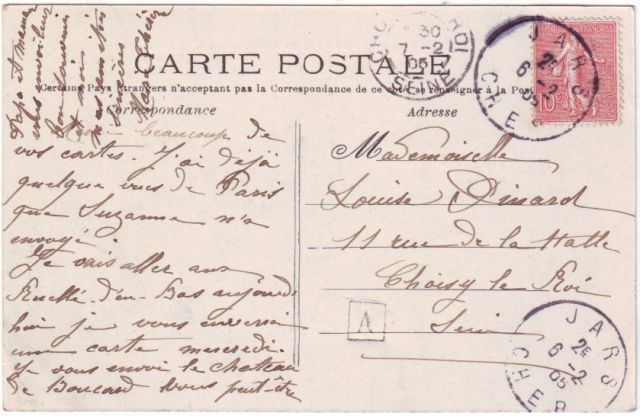 CARTE POSTALE
Certains Pays étrangers n'acceptant pas la Correspondance de ce côté se renseigner à la Poste
Correspondance
Adresse
beaucoup de
vos cartes. J'ai déjà
quelque vues de Paris
que Suzanne m'a
envoyé.
Je vais aller aux
d'en-Bas aujourd
hui je vous enverrai
une carte mercredi.
Je vous envoi le chateau
de Boucard Vous peut-être
Papa et maman
Mademoiselle
Louise Dinard
11 rue de la Halle
Choisy le Roi
Seine
A
JARS
2E
6-2
05
CHER
JARS
2E
6-2
05
CHER
30
7-2
05
SEINE
10